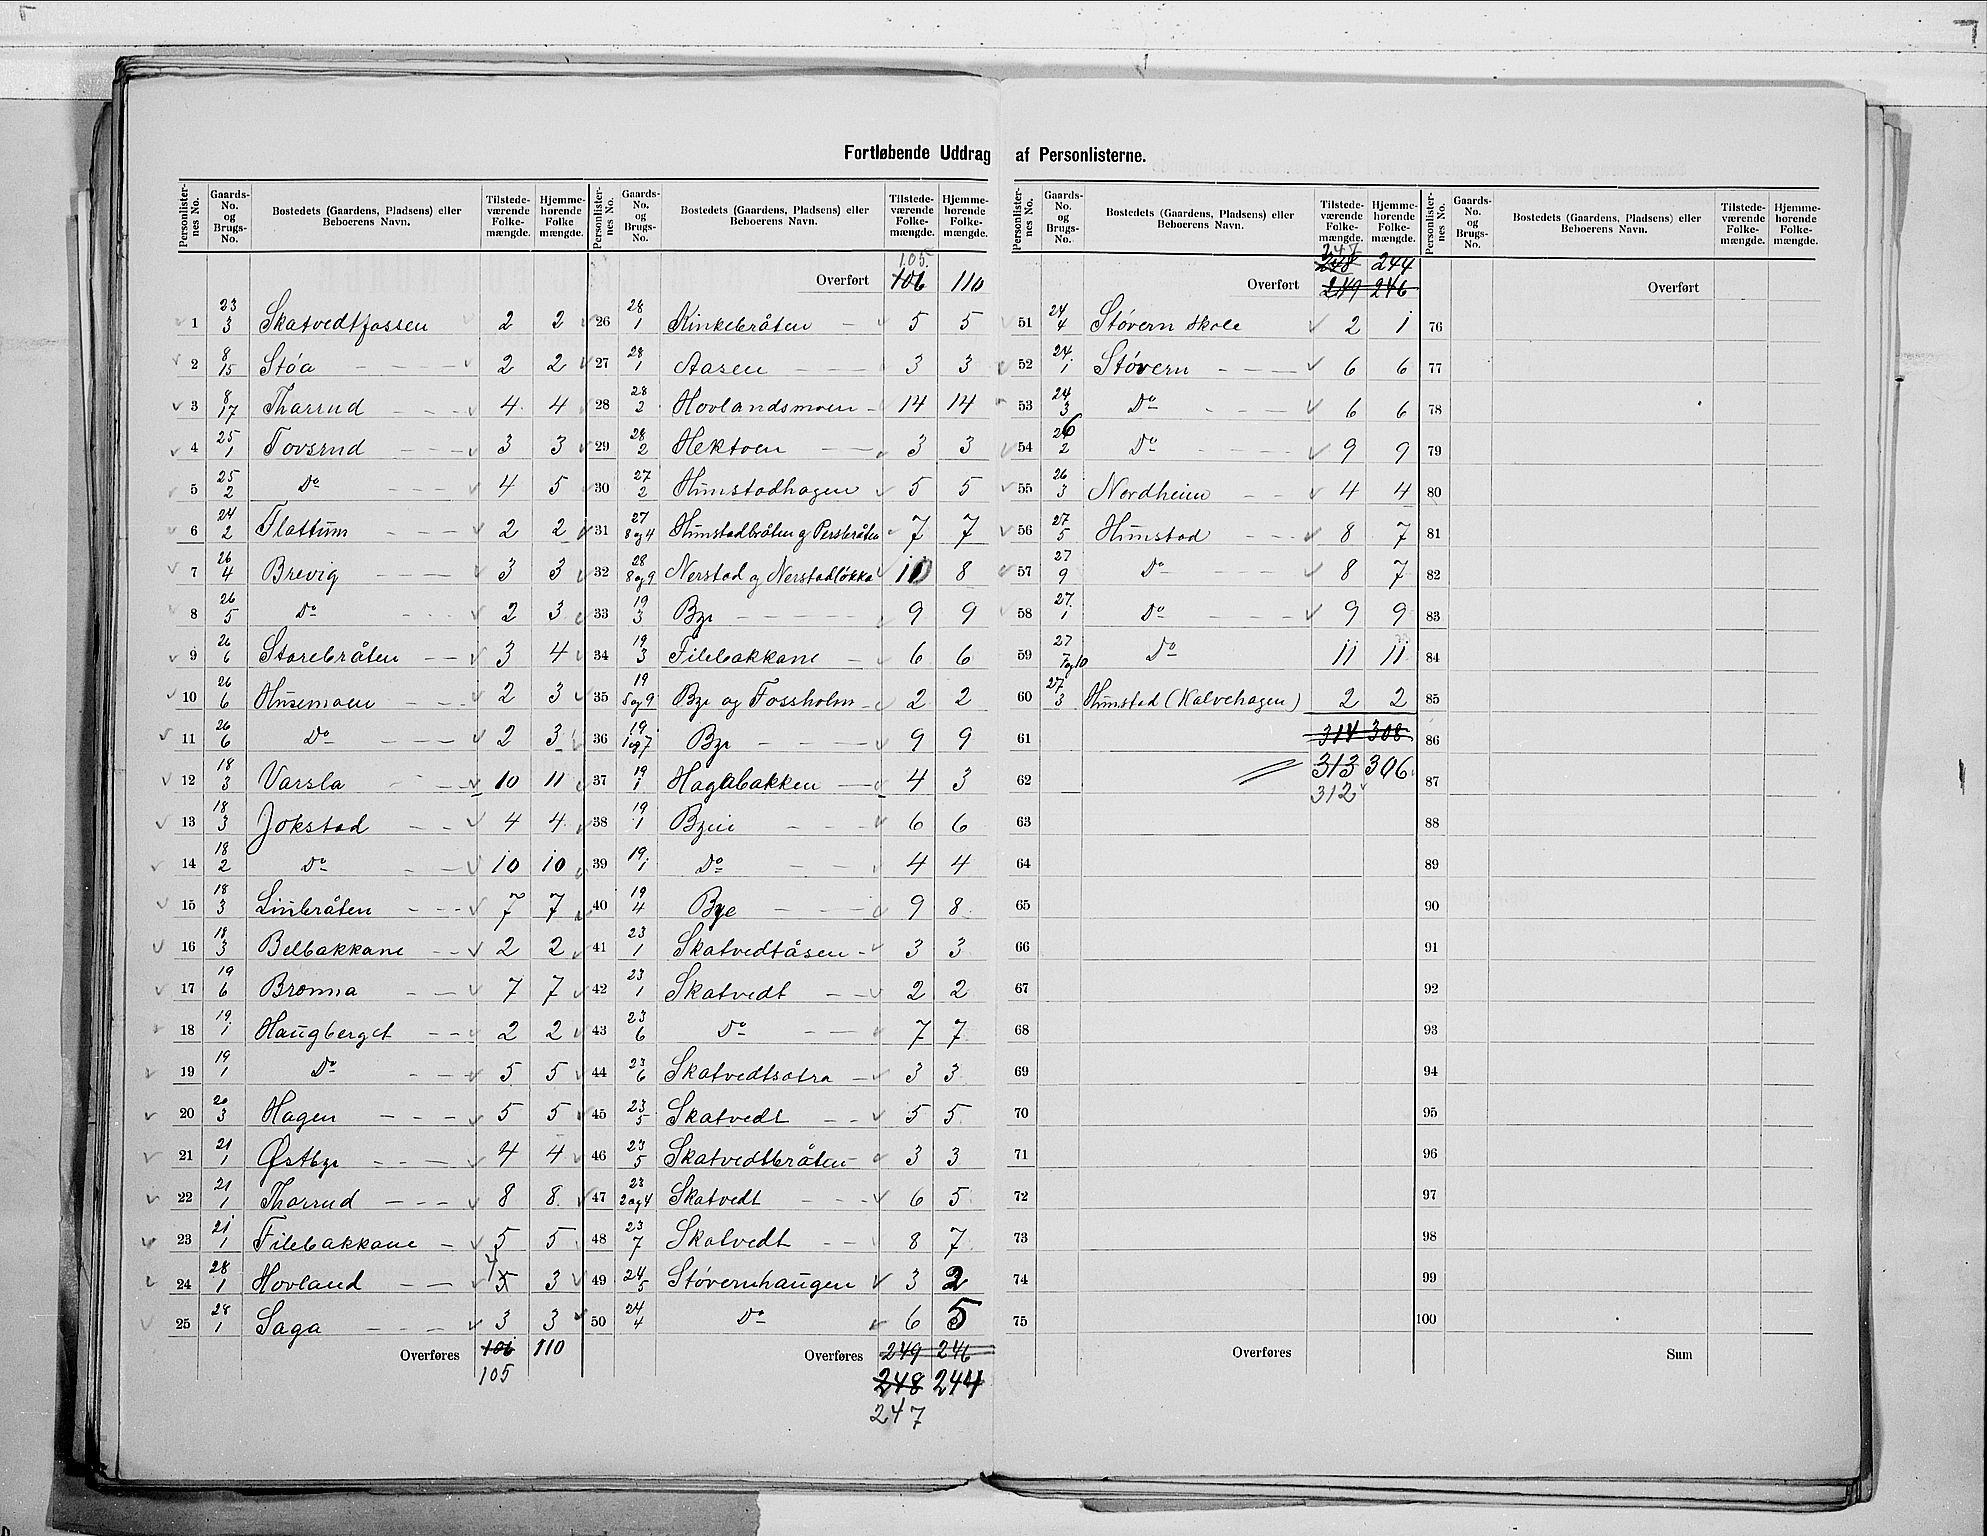 Fortløbende Uddrag af Personlisterne.
Personlister-nes No. | Gaards-No. og Brugs-No. | Bostedets (Gaardens, Pladsens) eller Beboerens Navn. | Tilstede-værende Folke-mængde. | Hjemme-hørende Folke mængde.
1 | 23/3 | Skatvedtfossen | 2 | 2
2 | 8/15 | Støa | 2 | 2
3 | 8/17 | Tharrud | 4 | 4
4 | 25/1 | Tovsrud | 3 | 3
5 | 25/2 | Do | 4 | 5
6 | 24/2 | Flattum | 2 | 2
7 | 26/4 | Brevig | 3 | 3
8 | 26/5 | Do | 2 | 3
9 | 26/6 | Storebråten | 3 | 4
10 | 26/6 | Husemoen | 2 | 3
11 | 26/6 | Do | 2 | 3
12 | 18/3 | Varsla | 10 | 11
13 | 18/3 | Jokstad | 4 | 4
14 | 18/2 | Do | 10 | 10
15 | 18/3 | Linbråten | 7 | 7
16 | 18/3 | Belbakkane | 2 | 2
17 | 19/6 | Bronna | 7 | 7
18 | 19/1 | Haugberget | 2 | 2
19 | 19/1 | Do | 5 | 5
20 | 20/3 | Hagen | 5 | 5
21 | 21/1 | Østbye | 4 | 4
22 | 21/1 | Tharrud | 8 | 8
23 | 21/1 | Filebakkane | 5 | 5
24 | 28/1 | Hovland | 5 4 | 3
25 | 28/1 | Saga | 3 | 3
Overføres 106 110
105
Personlister-nes No. | Gaards-No. og Brugs-No. | Bostedets (Gaardens, Pladsens) eller Beboerens Navn. | Tilstede-værende Folke-mængde. | Hjemme-hørende Folke-mængde.
105.
Overført 106 110
26 | 28/1 | Kinkebråten | 5 | 5
27 | 28/1 | Aasen | 3 | 3
28 | 28/2 | Hovlandsmoen | 14 | 14
29 | 28/2 | Hektoen | 3 | 3
30 | 27/2 | Himstadhagen | 5 | 5
31 | 27/8 og 4 | Himstadbråten og Persbråten | 7 | 7
32 | 28/8 og 9 | Nerstad og Nerstadløkka | 10 | 8
33 | 19/3 | Bye | 9 | 9
34 | 19/3 | Filebakkane | 6 | 6
35 | 19/5 og 9 | Bye og Fossholm | 2 | 2
36 | 19/1 og 7 | Bye | 9 | 9
37 | 19/1 | Hagabakken | 4 | 3
38 | 19/1 | Byeie | 6 | 6
39 | 19/1 | Do | 4 | 4
40 | 19/4 | Bye | 9 | 8
41 | 23/1 | Skatvedtåsen | 3 | 3
42 | 23/1 | Skatvedt | 2 | 2
43 | 23/6 | Do | 7 | 7
44 | 23/6 | Skatvedtsatra | 3 | 3
45 | 23/5 | Skatvedt | 5 | 5
46 | 23/5 | Skatvedtbråten | 3 | 3
47 | 23/2 og 4 | Skatvedt | 6 | 5
48 | 23/7 | Skatvedt | 8 | 7
49 | 24/5 | Støvernhaugen | 3 | 2
50 | 24/4 | Do | 6 | 5
Overføres 249 246
248 244
247
Personlister-nes No. | Gaards-No. og Brugs-No. | Bostedets (Gaardens, Pladsens) eller Beboerens Navn. | Tilstede-værende Folke-mængde. | Hjemme-hørende Folke-mængde.
247
248 244
Overført 249 246
51 | 24/4 | Støvern skole | 2 | 1
52 | 24/1 | Støvern | 6 | 6
53 | 24/3 | Do | 6 | 6
54 | 26/2 | Do | 9 | 9
55 | 26/3 | Nordheim | 4 | 4
56 | 27/5 | Himstad | 8 | 7
57 | 27/9 | Do | 8 | 7
58 | 27/1 | Do | 9 | 9
59 | 27/7 og 10 | Do | 11 | 11
60 | 27/3 | Himstad (Kalvehagen) | 2 | 2
61 314 308
62 313 306
312
63
64
65
66
67
68
69
70
71
72
73
74
75
Overføres
Personlister-nes No. | Gaards-No. og Brugs-No. | Bostedets (Gaardens, Pladsens) eller Beboerens Navn. | Tilstede-værende Folke-mængde. | Hjemme-hørende Folke-mængde.
Overført
76
77
78
79
80
81
82
83
84
85
86
87
88
89
90
91
92
93
94
95
96
97
98
99
100
Sum